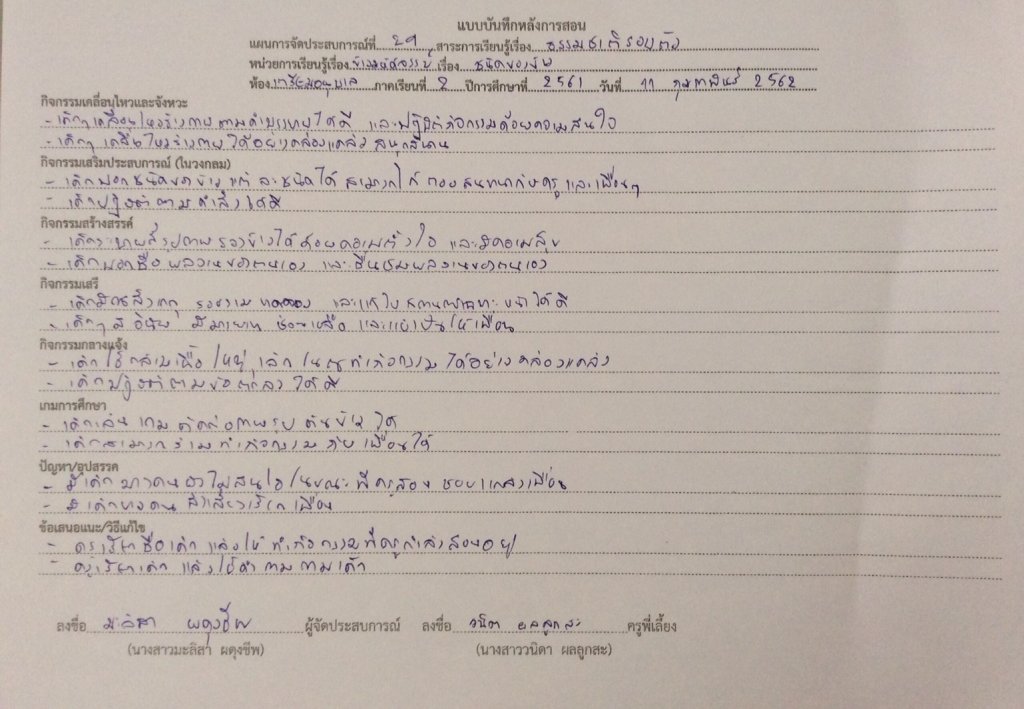 แบบบันทึกหลังการสอน
แผนการจัดประสบการณ์ที่ 29 สาระการเรียนรู้เรื่อง ธรรมชาติรอบตัว
หน่วยการเรียนรู้เรื่อง ข้าวมหัศจรรย์ เรื่อง ชนิดของข้าว
ห้อง เตรียมอนุบาล ภาคเรียนที่ 2 ปีการศึกษาที่ 2561 วันที่ 11 กุมภาพันธ์ 2562
กิจกรรมเคลื่อนไหวและจังหวะ
- เด็กๆเคลื่อนไหวร่างกายตามคำบรรยายได้ดี และปฏิบัติกิจกรรมด้วยความสนใจ
- เด็กๆ เคลื่อนไหวร่างกายได้อย่างคล่องแคล่ว สนุกสนาน
กิจกรรมเสริมประสบการณ์ (ในวงกลม)
- เด็กบอกชนิดของข้าวแต่ละชนิดได้ สนทนากับครูและเพื่อนๆ
- เด็กปฏิบัติตามคำสั่งได้ดี
กิจกรรมสร้างสรรค์
- เด็กระบายสีรูปภาพรวงข้าวได้ด้วยความตั้งใจ และมีความสุข
- เด็กบอกชื่อผลงานของตนเอง และชื่นชมผลงานของตนเอง
กิจกรรมเสรี
- เด็กมีการสังเกต และแก้ไขสถานการณ์เฉพาะหน้าได้ดี
- เด็กๆ มีวินัย มีมารยาท ช่วยเหลือ และแบ่งปันให้เพื่อน
กิจกรรมกลางแจ้ง
- เด็กใช้กล้ามเนื้อใหญ่ เล็ก ในการทำกิจกรรมได้อย่างคล่องแคล่ว
- เด็กปฏิบัติตามข้อตกลงได้ดี
เกมการศึกษา
- เด็กเล่นเกมตัดต่อภาพรูปต้นข้าวได้
- เด็กสามารถร่วมทำกิจกรรมกับเพื่อนได้
ปัญหา/อุปสรรค
- มีเด็กบางคนยังไม่สนใจในขณะที่ครูสอน ชอบแกล้งเพื่อน
- มีเด็กบางคนส่งเสียงเรียกเพื่อน
ข้อเสนอแนะ/วิธีแก้ไข
- ครูเรียกชื่อเด็ก แล้วให้ทำกิจกรรมที่ครูกำลังสอนอยู่
- ครูเรียกเด็ก แล้วใช้คำถามถามเด็ก
ลงชื่อ มะลิสา ผดุงชีพ ผู้จัดประสบการณ์ ลงชื่อ วนิดา ผลลูกสะ ครูพี่เลี้ยง
(นางสาวมะลิสา ผดุงชีพ) (นางสาววนิดา ผลลูกสะ)